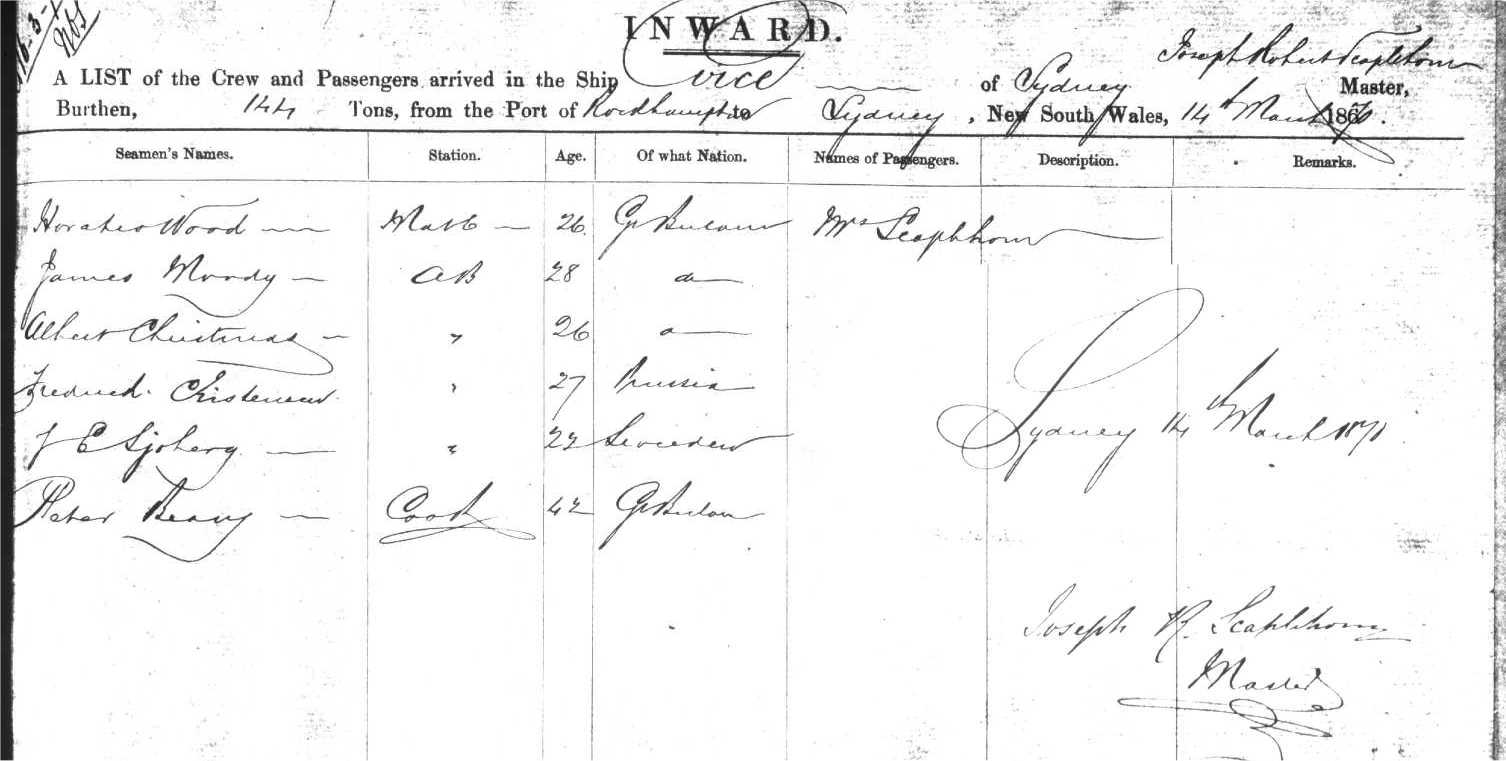 INWARD.
Joseph Robert Scaplehorn
A LIST of the Crew and Passengers arrived in the Ship of Sydney Master,
Burthen, 144 Tons, from the Port of Rockhampton to Sydney, New South Wales, 14th March 187
Seamen's Names. Station. Age. Of what Nation. Names of Passengers. Description. Remarks.
Horatio Wood Mate 26 Gt Britain Mrs Scaplehorn
James Moody AB 28 do
Albert Christmas " 26 do
Fredrick Christensen " 27 Prussia
J E Sjoberg " 22 Sweeden
Sydney 14th March 1871
Peter Cook 42 Gt Britain
Joseph R. Scaplehorn
Master